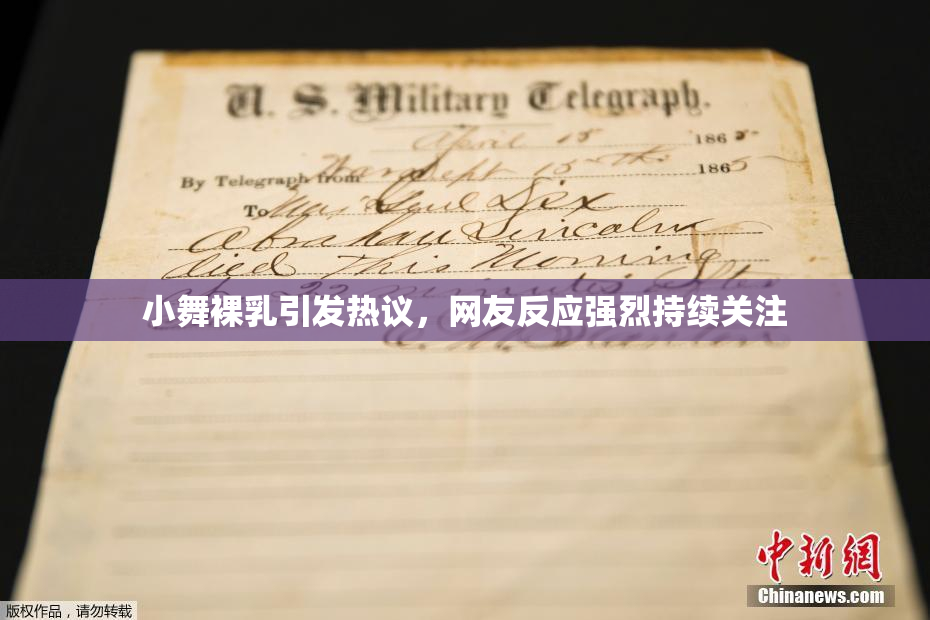 U. S. Military Telegraph.
April 15 1865
By Telegraph from War Dept 15th 1865
To Maj Genl Dix
Abraham Lincoln
died This Morning
22 minutes after
小舞裸乳引发热议，网友反应强烈持续关注
E. M. Stanton
中新网
Chinanews.com
版权作品，请勿转载